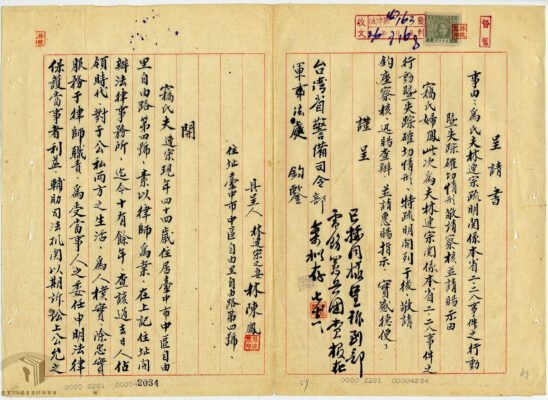 呈請書
事由：為氏夫林連宗疏明關係本省二二八事件之行動
暨失踪確切情形敬請察核並請賜示由
竊氏婦鳳此次為夫林連宗關係本省二二八事件之
行動暨失踪確切情形、特疏明開列于後敬請
鈞座察核、迅賜查辦、並請惠賜指示、實感德便、
謹呈
台灣省警備司令部
軍事法處 鈞鑒
具呈人 林連宗之妻 林陳鳳
住址臺中市中區自由里自由路第四號、
開
竊氏夫連宗現年四十四歲住居臺中市中區自由
里自由路第四號、素以律師為業、在上記住址開
辦法律事務所、迄今十有餘年、查該過去日人佔
領時代、對于公私兩方之生活、為人樸實、除忠實
服務于律師職責、為受當事人之委任申明法律
保護當事者利益、輔助司法機関以期訴訟上公允之
收文
0000 2281
2034
0000 2281 00004234